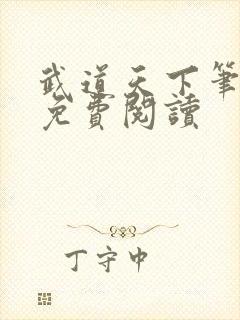 武道天下筆
免費閱讀
丁守中